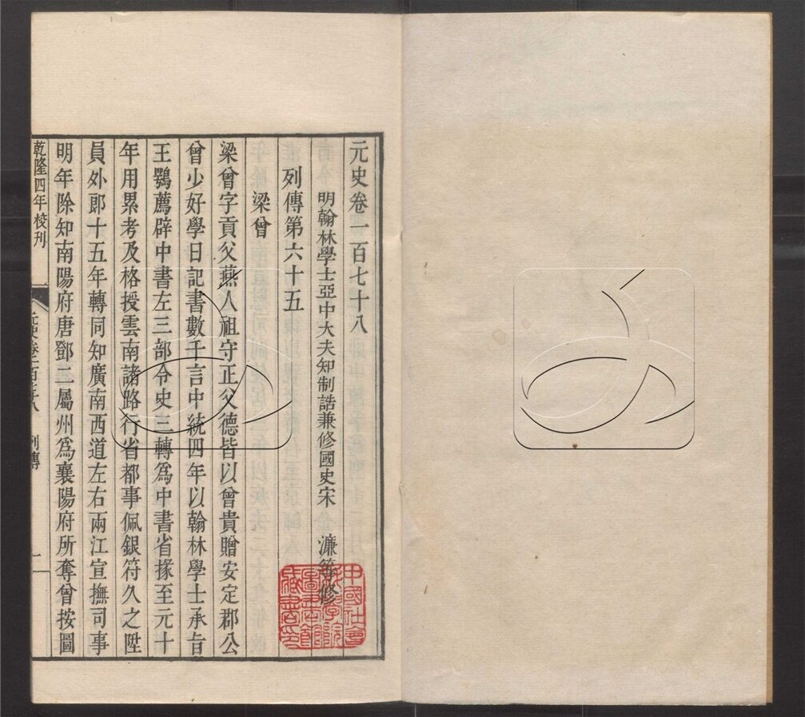 元史卷一百七十八
明翰林學士亞中大夫知制誥兼修國史宋　濂等修
列傳第六十五
梁曾
梁曾字貢父燕人祖守正父德皆以曾貴贈安定郡公
曾少好學日記書數千言中統四年以翰林學士承旨
王鶚薦辟中書左三部令史三轉爲中書省掾至元十
年用累考及格授雲南諸路行省都事佩銀符久之陞
員外郎十五年轉同知廣南西道左右兩江宣撫司事
明年除知南陽府唐鄧二屬州爲襄陽府所奪曾按圖
乾隆四年校刊
元史卷一百七十八　列傳　一
中國社會
科學院
圖書館
藏書印